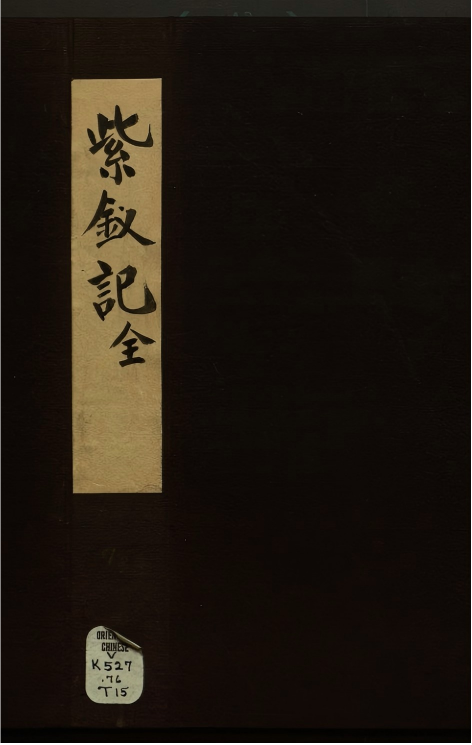 紫釵記全
ORIEN
CHINESE
V
K527
.76
T15